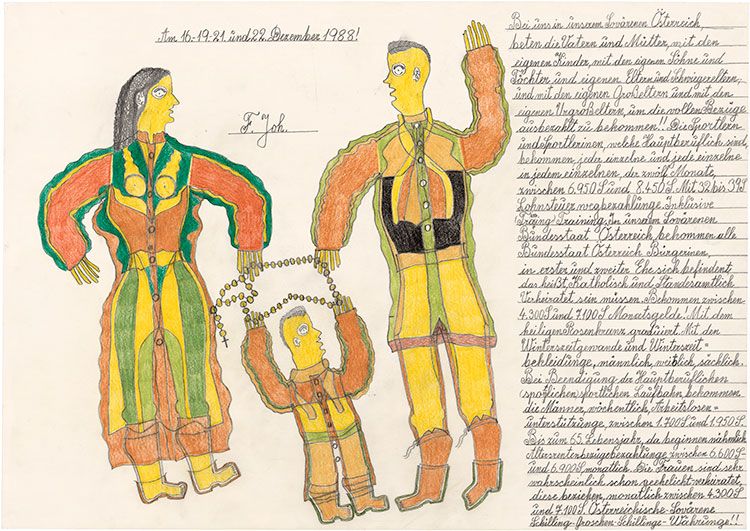 Am 16.-19.-21. und 22. Dezember 1988!
F. Joh.
Bei uns in unsarem Sovärenen Österreich,
beten die Vatern und Mütter, mit den
eigenen Kinder, mit den eigenen Söhne und
Töchter und eigenen Eltern und Schwiegereltern,
und mit den eigenen Großeltern und mit den
eigenen Urgroßeltern, um die vollen Bezüge
ausbezahlt zu bekommen!! Die Sportlern
und Sportlerinen, welche Hauptberüflich sind,
bekommen, jeder einzelne und jede einzelne
in jedem einzelnen, der zwölf Monate,
zwischen 6.950 S und 8.450 S. Mit 32 bis 39 S
Lohnsteuer wegbezahlunge. Inklusive
Training. In unsarem Sovärenen
Bundesstaat Österreich, bekommen alle
Bundesstaat Österreich Bürgerinen,
in erster und zweiter Ehe sich befindent
das heißt, Katholisch und Standesamtlich
Verheiratet sein missen. Bekommen zwischen
4.300 S und 7.100 S Monatsgelde! Mit dem
heiligen Rosenkranz, graduiert. Mit den
Winterszeitgewande und Winterszeit=
bekleidunge, männlich, weiblich, sächlich.
Bei Beendigung der Hauptberuflichen
sportlichen Laufbahn, bekommen
die Männer, wöchentlich, Arbeitslosen=
unterstützunge, zwischen 1.700 S und 1.950 S.
Bis zum 65. Lebensjahr, da beginnen nähmlich
Altersrentebezugebezahlunge zwischen 6.600 S
und 6.900 S, monatlich. Die Frauen sind sehr
wahrscheinlich schon geehelicht-verheiratet,
diese beziehen, monatlich zwischen 4.300 S
und 7.100 S. Österreichische-Sovärene
Schilling-Groschen-Schillinge-Währunge!!